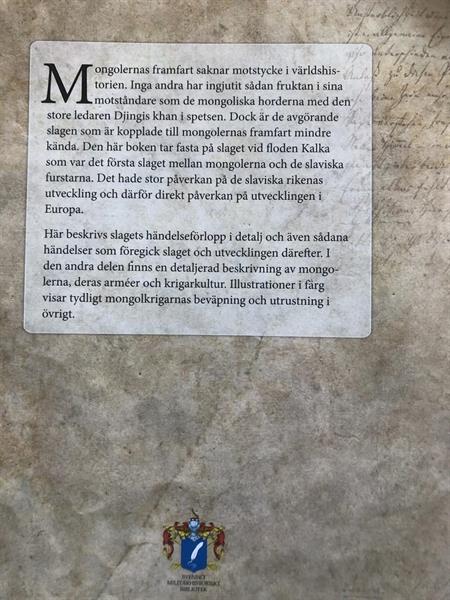 Mongolernas framfart saknar motstycke i världshis-
torien. Inga andra har ingjutit sådan fruktan i sina
motståndare som de mongoliska horderna med den
store ledaren Djingis khan i spetsen. Dock är de avgörande
slagen som är kopplade till mongolernas framfart mindre
kända. Den här boken tar fasta på slaget vid floden Kalka
som var det första slaget mellan mongolerna och de slaviska
furstarna. Det hade stor påverkan på de slaviska rikenas
utveckling och därför direkt påverkan på utvecklingen i
Europa.
Här beskrivs slagets händelseförlopp i detalj och även sådana
händelser som föregick slaget och utvecklingen därefter. I
den andra delen finns en detaljerad beskrivning av mongo-
lerna, deras arméer och krigarkultur. Illustrationer i färg
visar tydligt mongolkrigarnas beväpning och utrustning i
övrigt.
SVENSKT
MILITÄRHISTORISKT
BIBLIOTEK